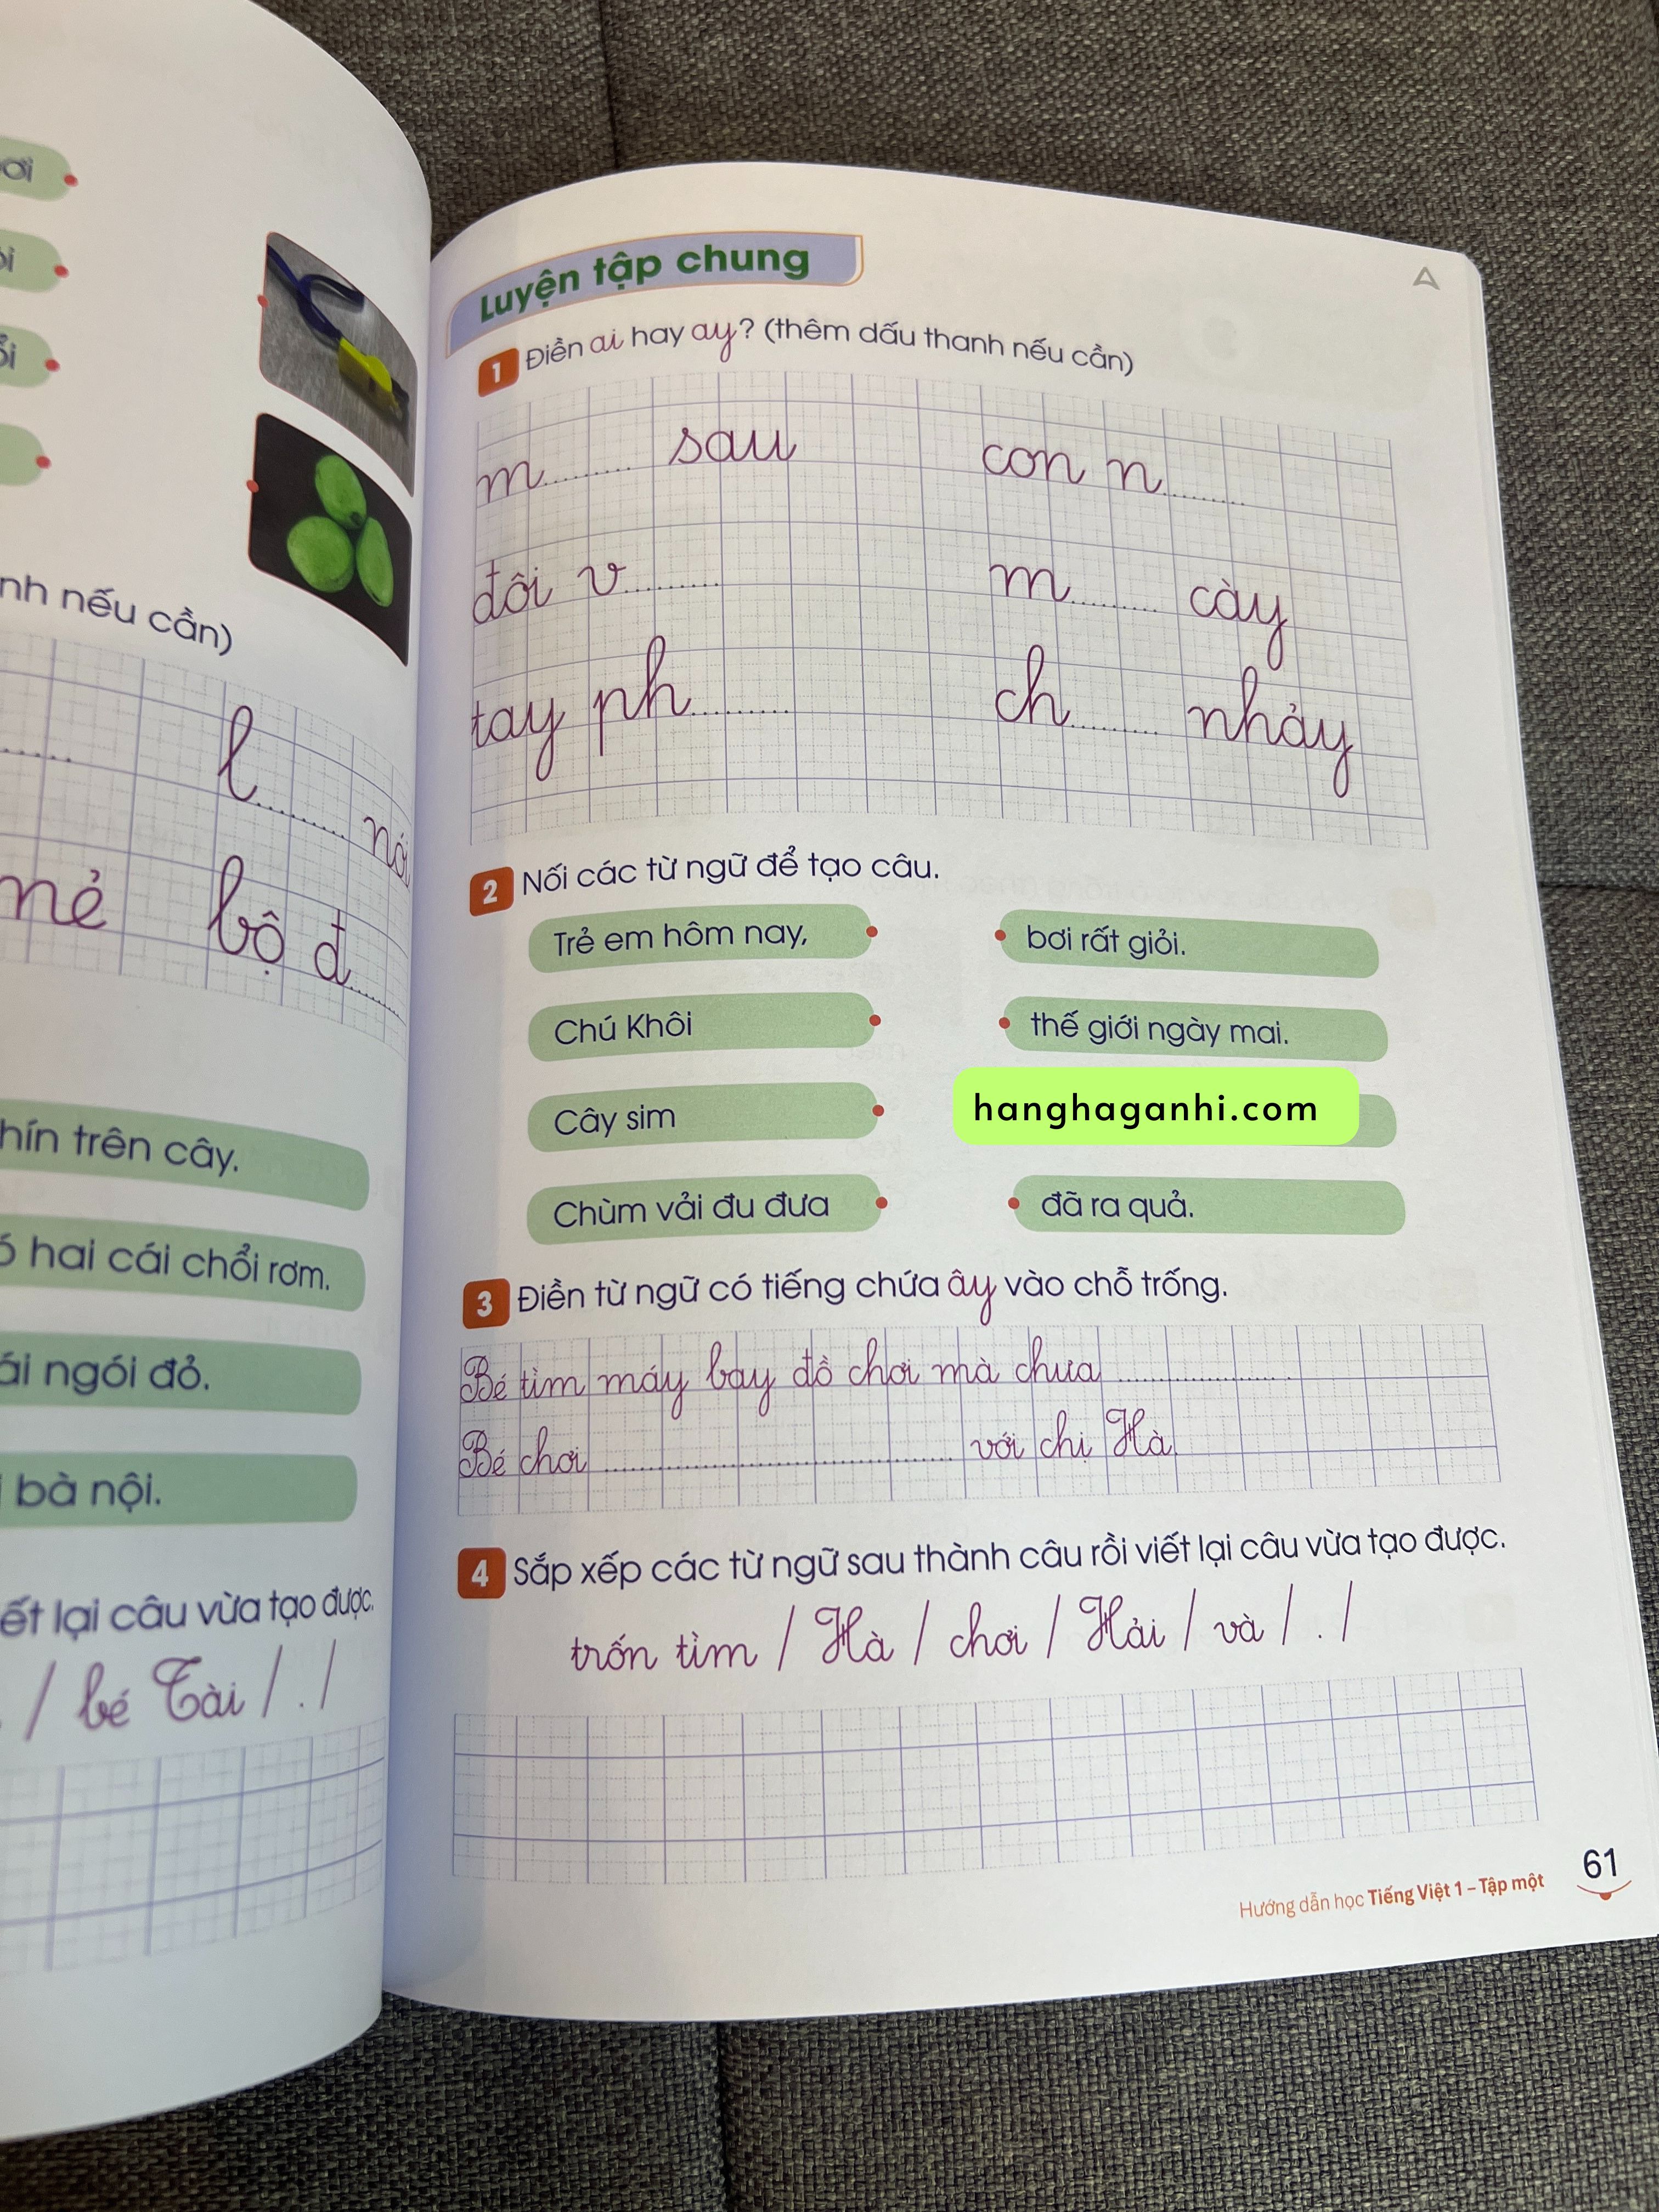 ơi
ỏi
ổi
nh nếu cần)
l........ nói
nẻ bộ đ......
hín trên cây.
ó hai cái chổi rơm.
ái ngói đỏ.
bà nội.
ết lại câu vừa tạo được.
/ bé Tài / . /
Luyện tập chung
1 Điền ai hay ay? (thêm dấu thanh nếu cần)
m........ sau con n........
đôi v........ m........ cày
tay ph........ ch........ nhảy
2 Nối các từ ngữ để tạo câu.
Trẻ em hôm nay, bơi rất giỏi.
Chú Khôi thế giới ngày mai.
Cây sim hanghaganhi.com
Chùm vải đu đưa đã ra quả.
3 Điền từ ngữ có tiếng chứa ây vào chỗ trống.
Bé tìm máy bay đồ chơi mà chưa ..................
Bé chơi .................................... với chị Hà
4 Sắp xếp các từ ngữ sau thành câu rồi viết lại câu vừa tạo được.
trốn tìm / Hà / chơi / Hải / và / . /
Hướng dẫn học Tiếng Việt 1 – Tập một 61